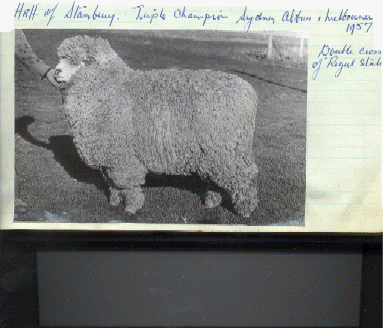 HRH of Stanbury. Triple Champion Sydney Albury & Melbourne
1957
Double cross
of Regal State